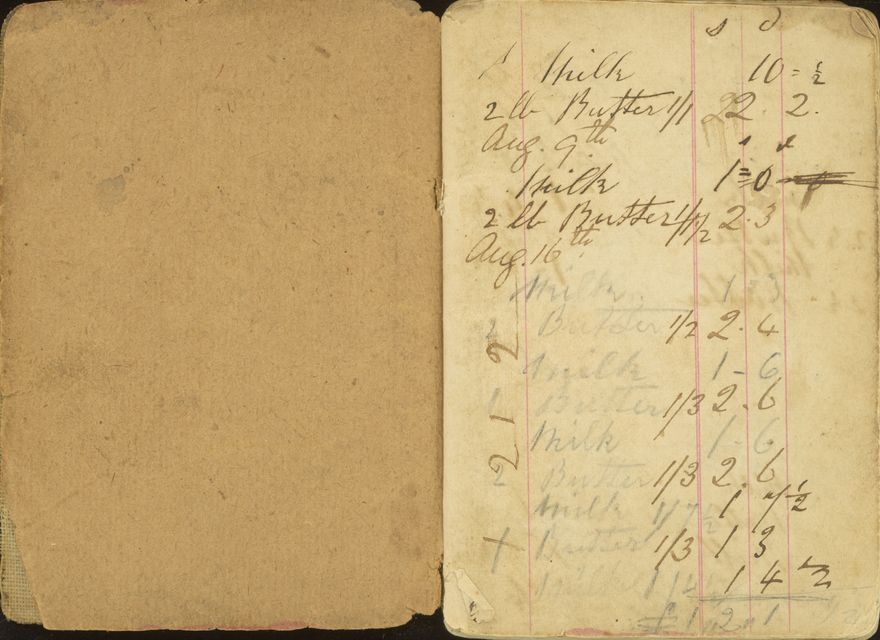 s d
Milk 10=½
2 lb Butter 1/1 2 2.
Aug. 9th s d
Milk 1=0
2 lb Butter 1/1½ 2.3
Aug. 16th
Milk 1=3
2 Butter 1/2 2.4
Milk 1-6
Butter 1/3 2.6
Milk 1-6
2 Butter 1/3 2.6
Milk 1/7½ 1 7½
1 Butter 1/3 1 3
Milk 1 4½
£1 2 1